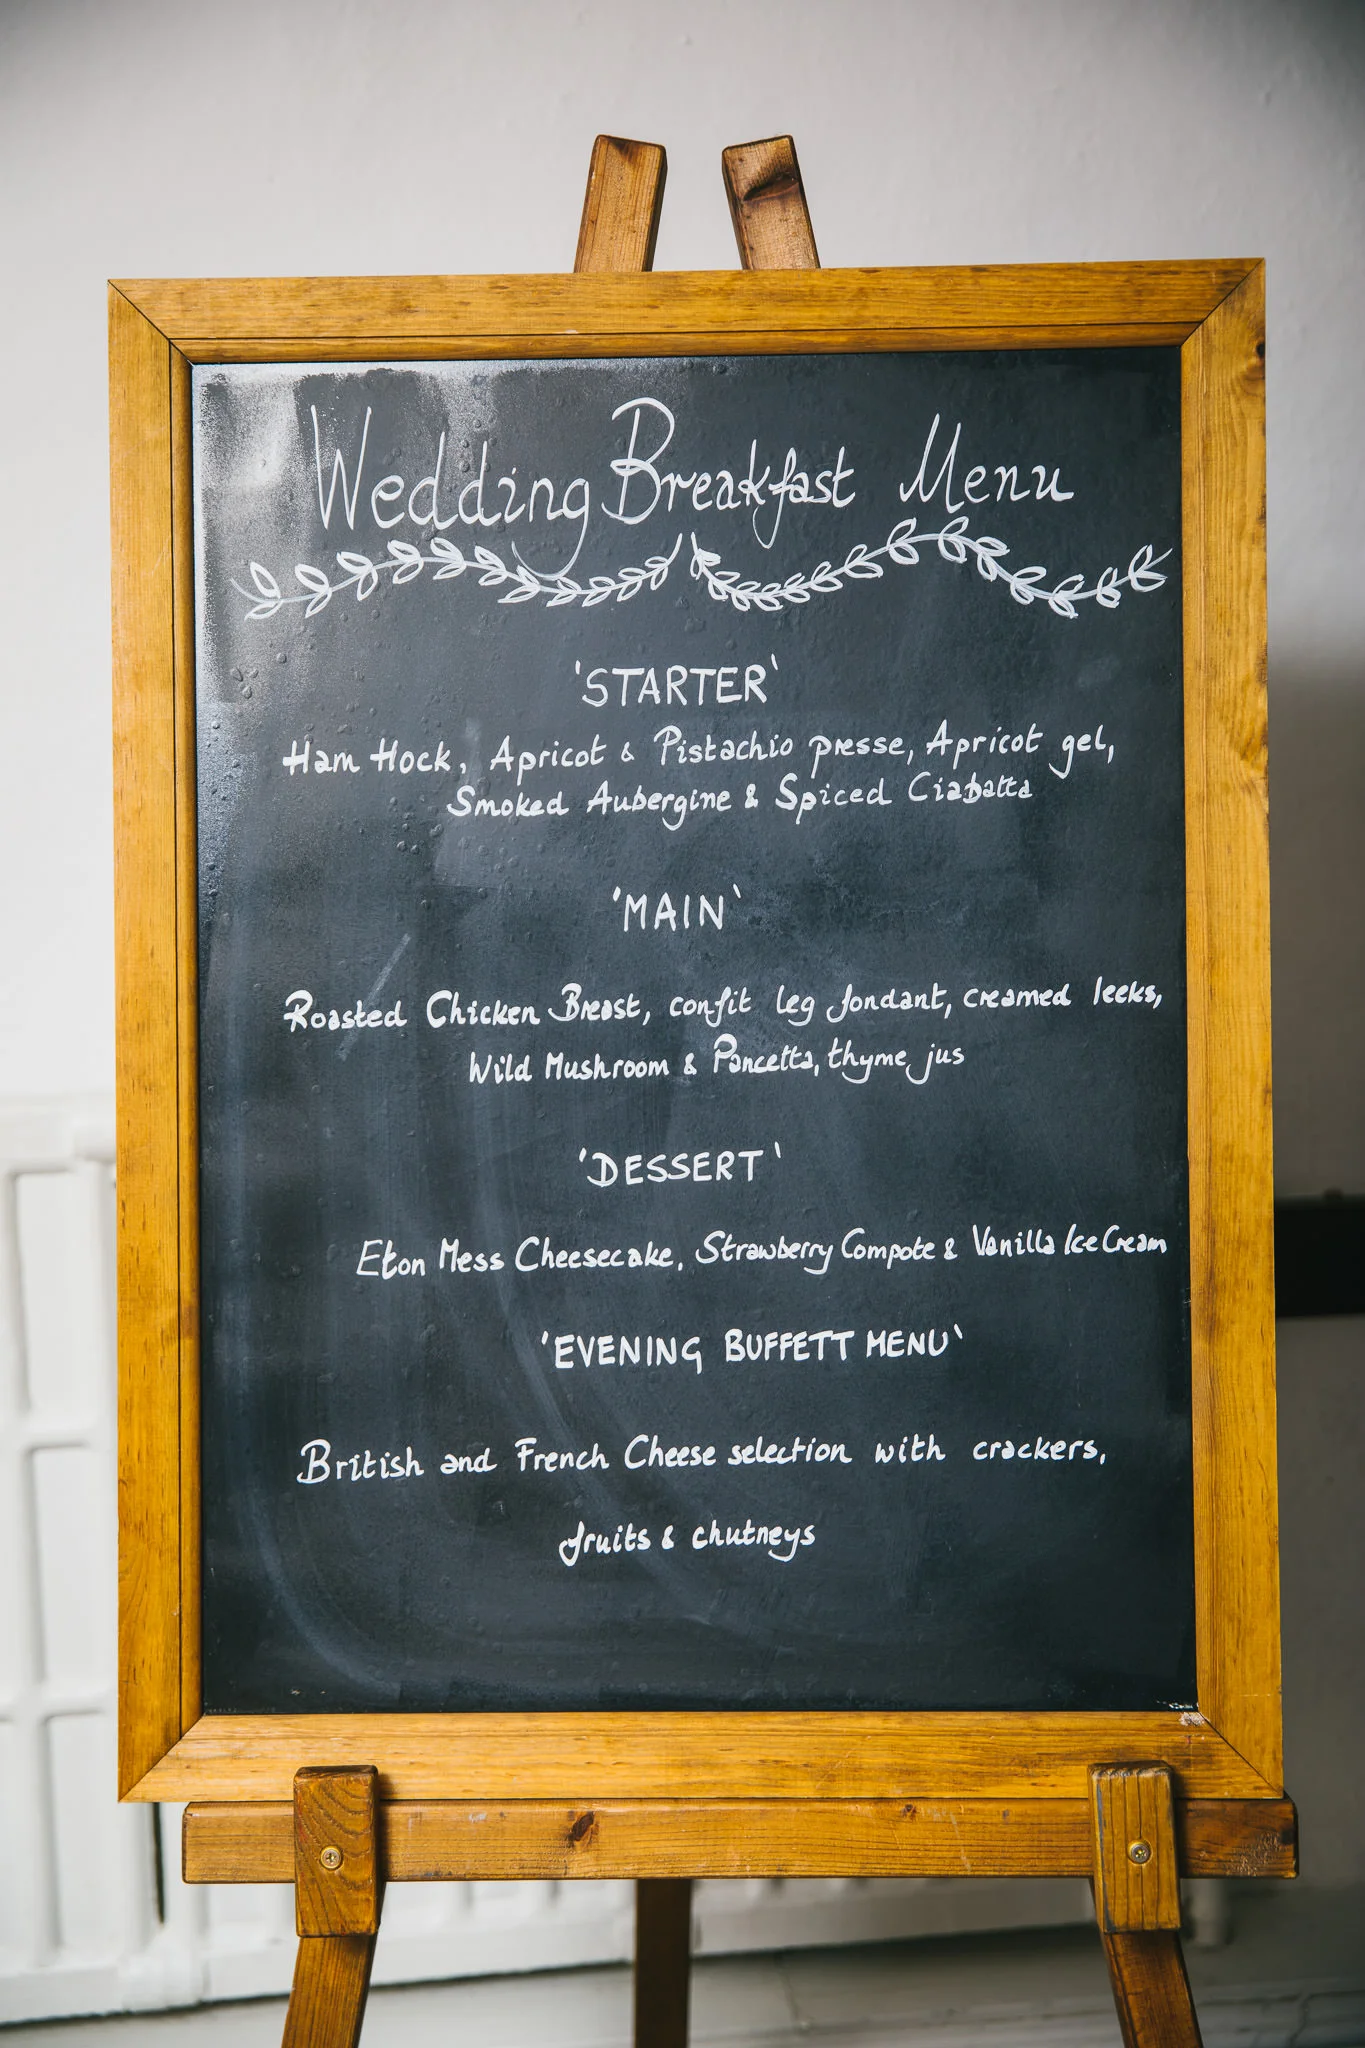 Wedding Breakfast Menu
'STARTER'
Ham Hock, Apricot & Pistachio presse, Apricot gel,
Smoked Aubergine & Spiced Ciabatta
'MAIN'
Roasted Chicken Breast, confit leg fondant, creamed leeks,
Wild Mushroom & Pancetta, thyme jus
'DESSERT'
Eton Mess Cheesecake, Strawberry Compote & Vanilla Ice Cream
'EVENING BUFFETT MENU'
British and French Cheese selection with crackers,
fruits & chutneys